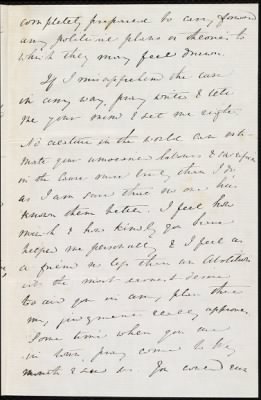 completely prepared to carry forward
any political plans or schemes to
which they may feel drawn.
If I misapprehend the case
in any way, pray write & tell
me your mind & set me right.
No creature in the world can esti-
mate your immense labours &
in the cause more truly than I do,
as I am sure there is no one has
known them better. I feel how
much & how kindly you have
helped me personally & I feel as
a friend no less than an Abolitionist
the most earnest desire
to aid you in any plan that
my judgment could approve.
Some time when you are
in town, pray come to Wey-
mouth & see us. You could